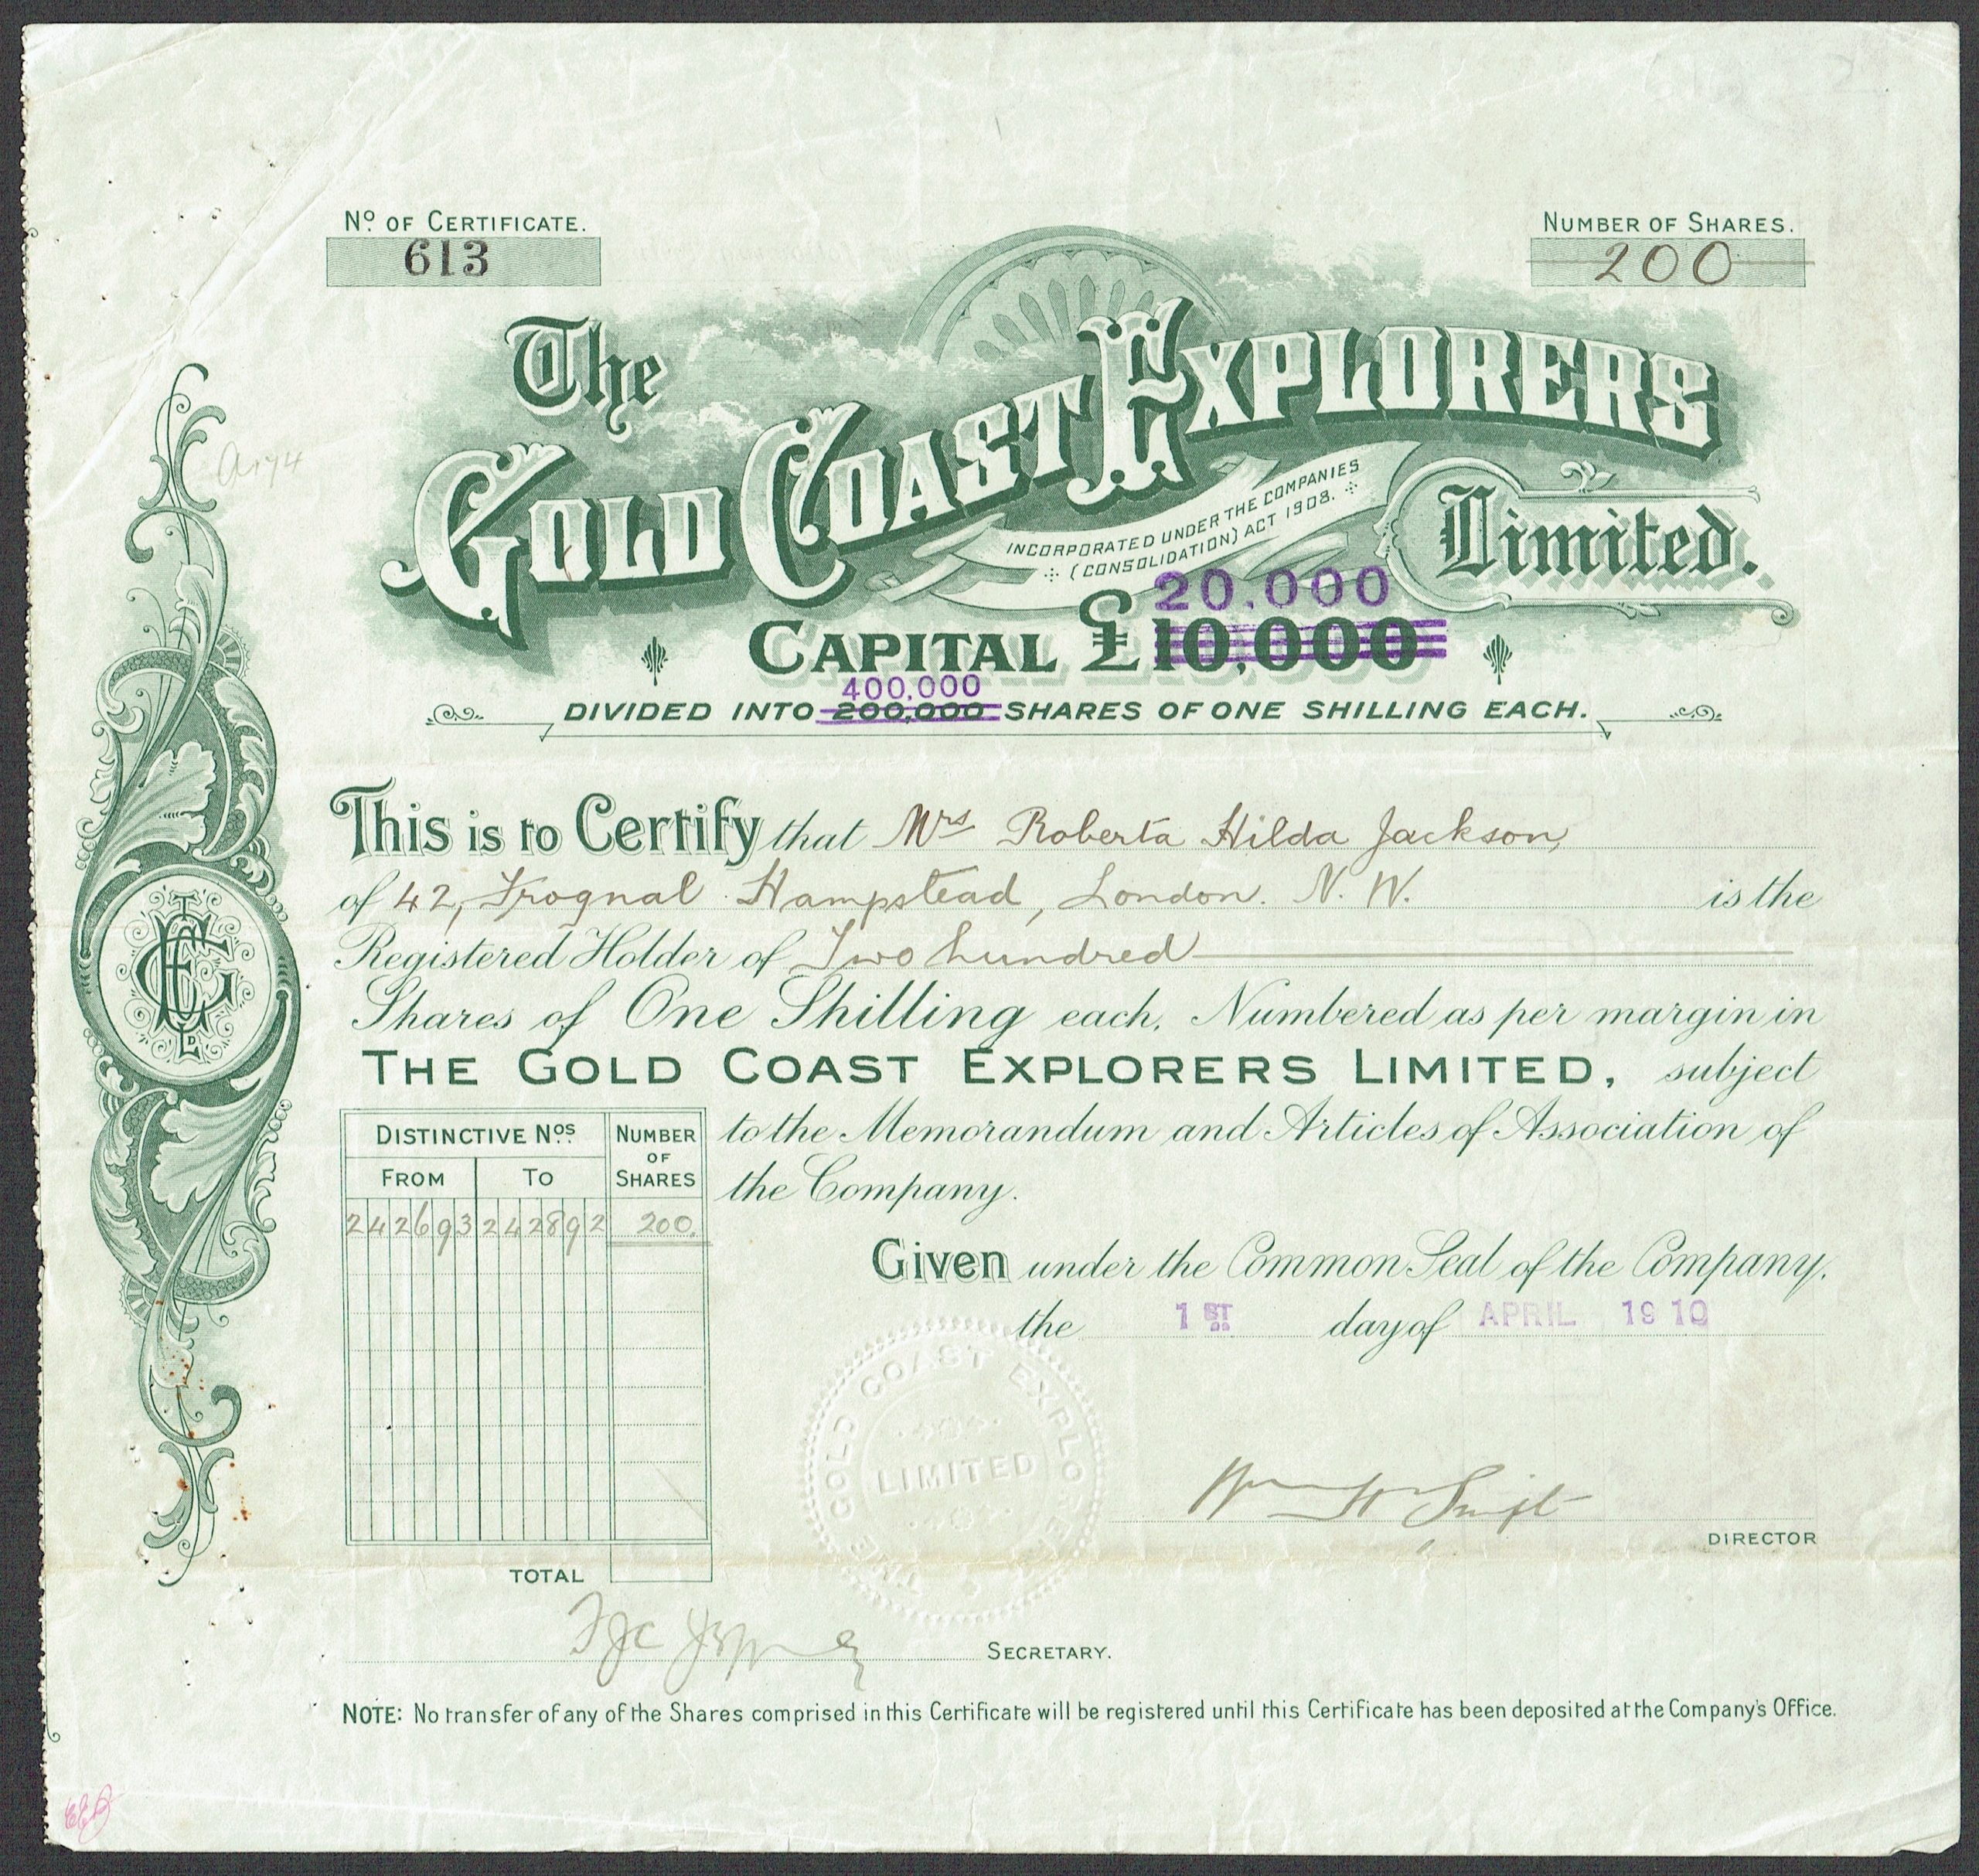 Nº OF CERTIFICATE.
613
NUMBER OF SHARES.
200
The
GOLD COAST EXPLORERS
INCORPORATED UNDER THE COMPANIES
(CONSOLIDATION) ACT 1908.
Limited.
20.000
CAPITAL £10,000
400,000
DIVIDED INTO 200,000 SHARES OF ONE SHILLING EACH.
This is to Certify that Mrs Roberta Hilda Jackson,
of 42, Frognal Hampstead, London. N. W. is the
Registered Holder of Two hundred
Shares of One Shilling each, Numbered as per margin in
THE GOLD COAST EXPLORERS LIMITED, subject
to the Memorandum and Articles of Association of
the Company.
DISTINCTIVE Nos. NUMBER OF SHARES
FROM TO
242693 242892 200.
TOTAL
Given under the Common Seal of the Company,
the 1ST day of APRIL 1910
THE GOLD COAST EXPLORERS
LIMITED
Wm H Swift
DIRECTOR
SECRETARY.
NOTE: No transfer of any of the Shares comprised in this Certificate will be registered until this Certificate has been deposited at the Company's Office.